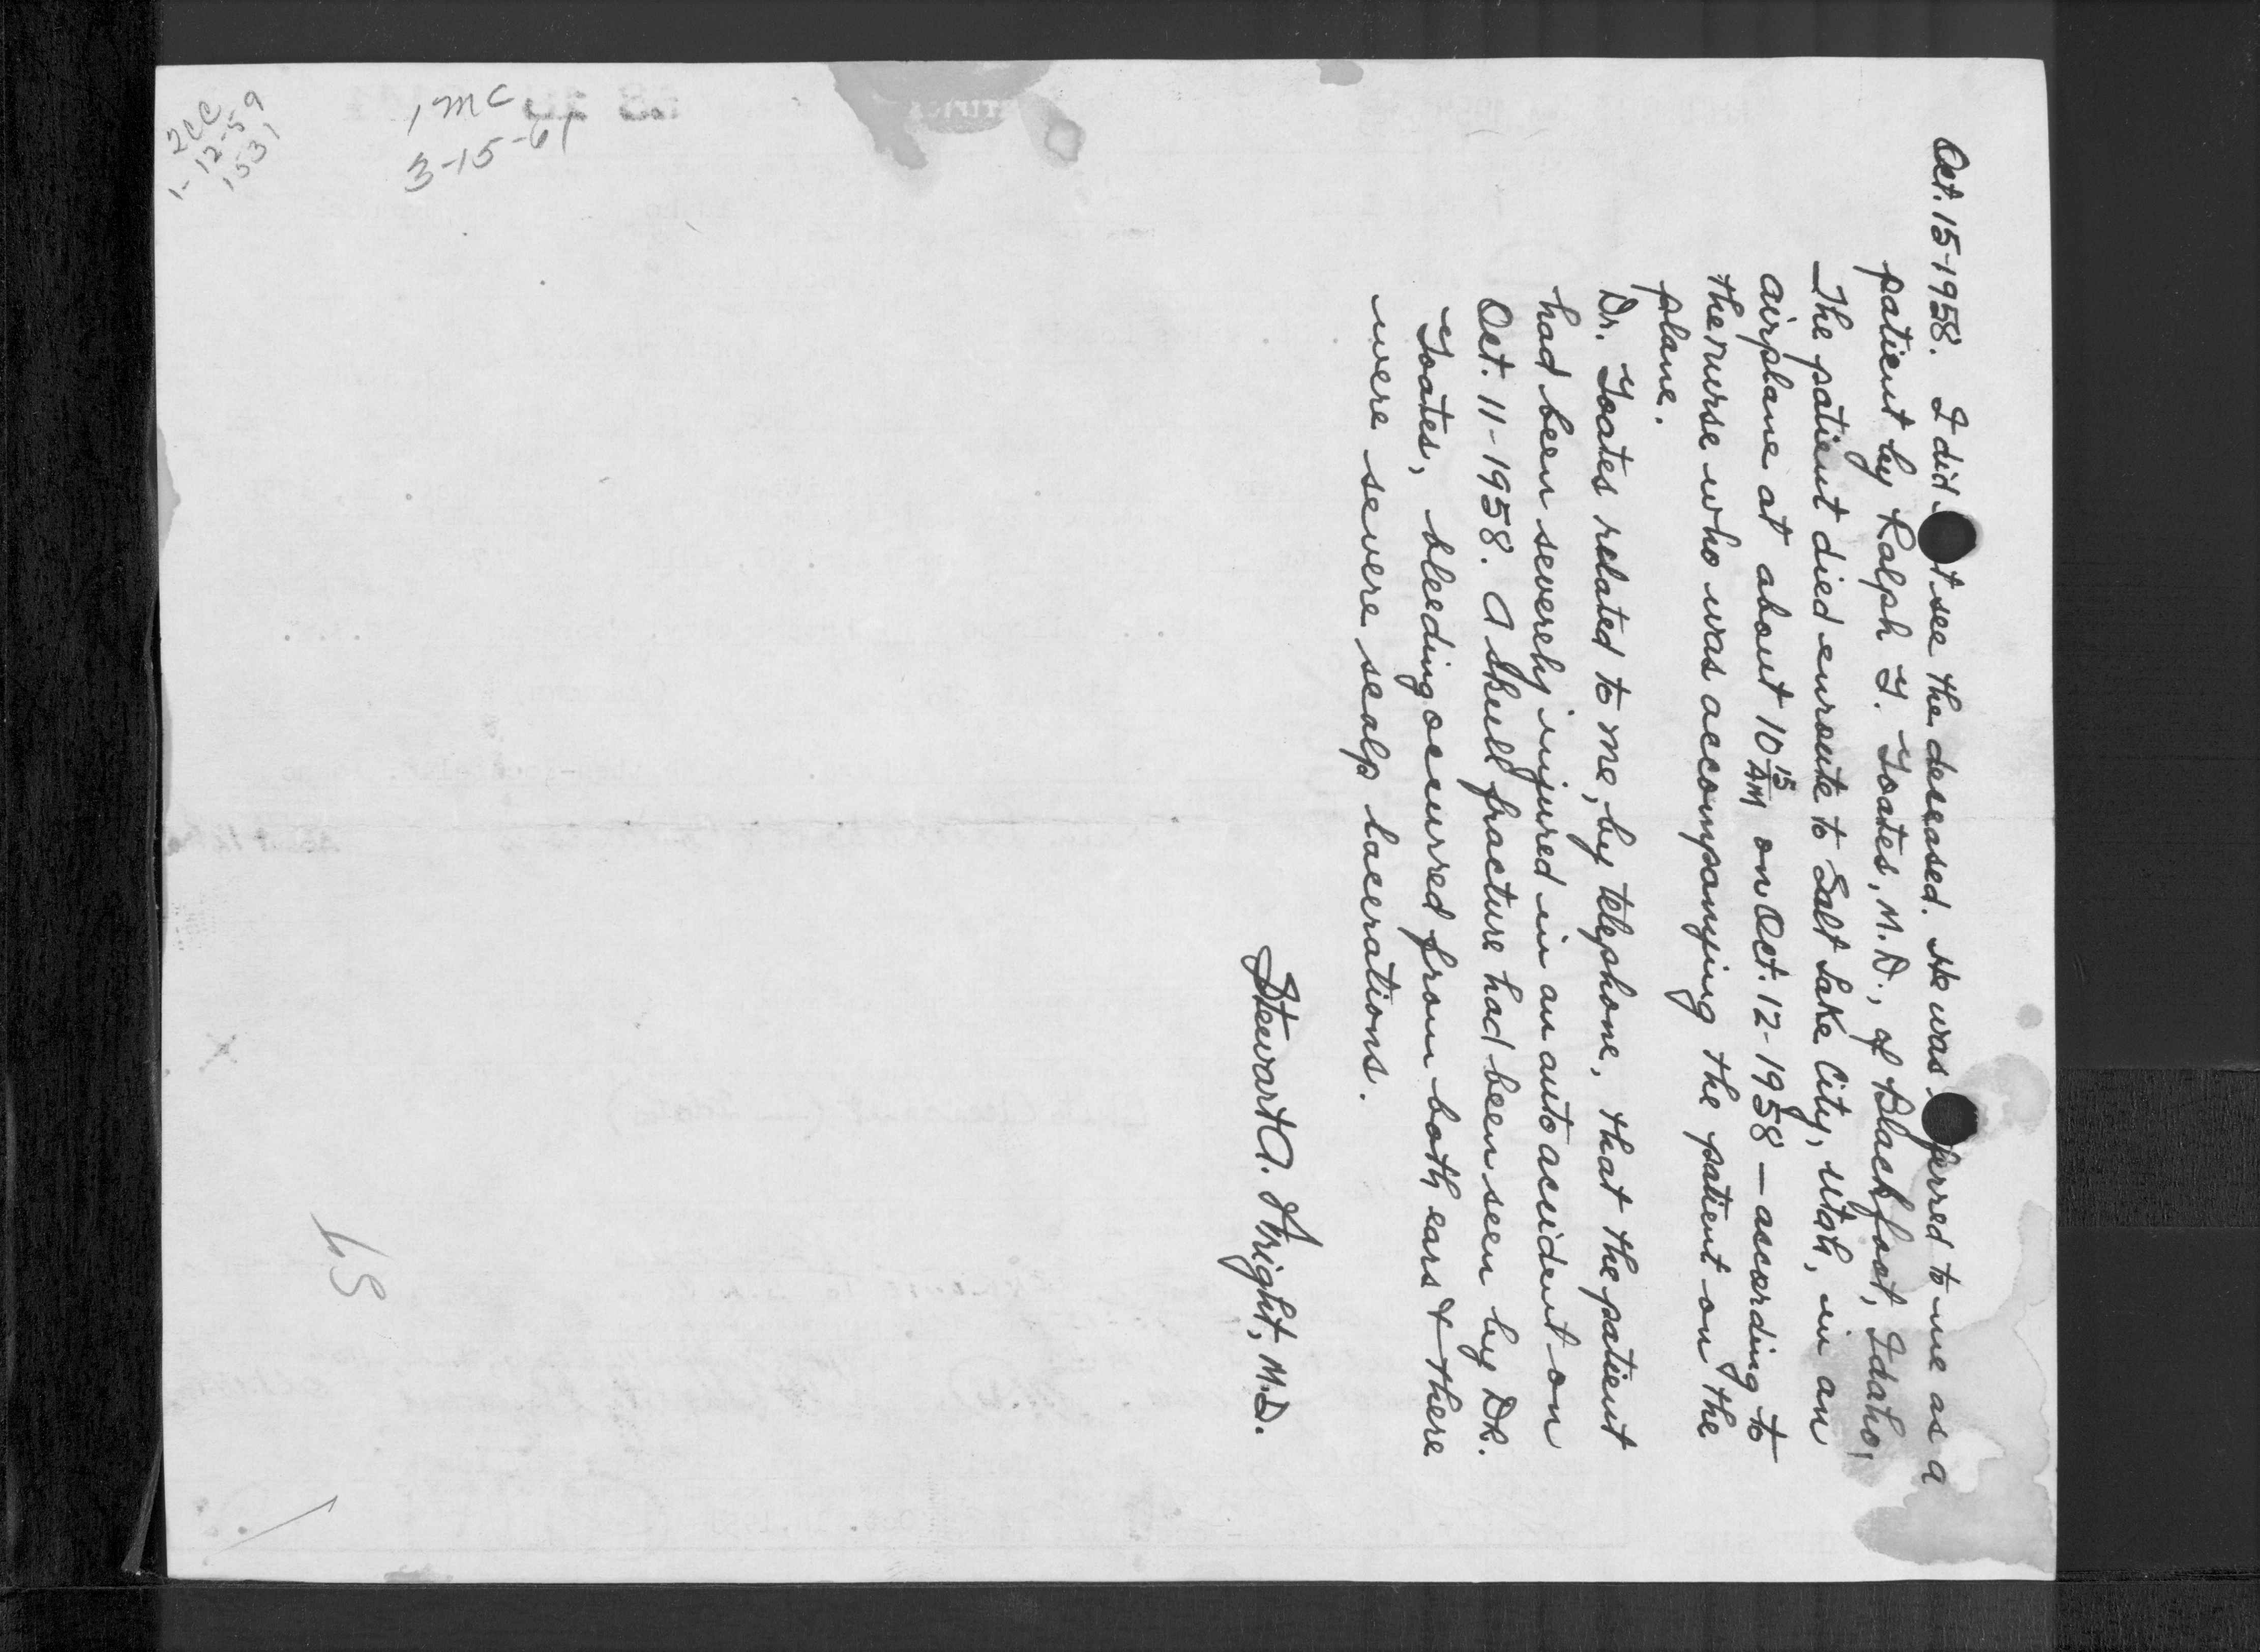 Oct. 15-1958. I did t see the deseased. He was ferred to me as a
patient by Ralph Y. Yoates, M.D., of Blackfoot, Idaho,
The patient died enroute to Salt Lake City, Utah, in an
airplane at about 10 15 AM on Oct. 12-1958 — ascording to
the nurse who was accompanying the patient on the
plane.
Dr. Yoates related to me, by telephone, that the patient
had been severely injured in an auto accident on
Oct. 11-1958. A skull fracture had been seen by DR.
Yoates, bleeding ocurred from both ears & there
were severe scalp lacerations.
Stewart A. Wright, M.D.
1 mc
3-15-61
2CC
1-12-59
1531